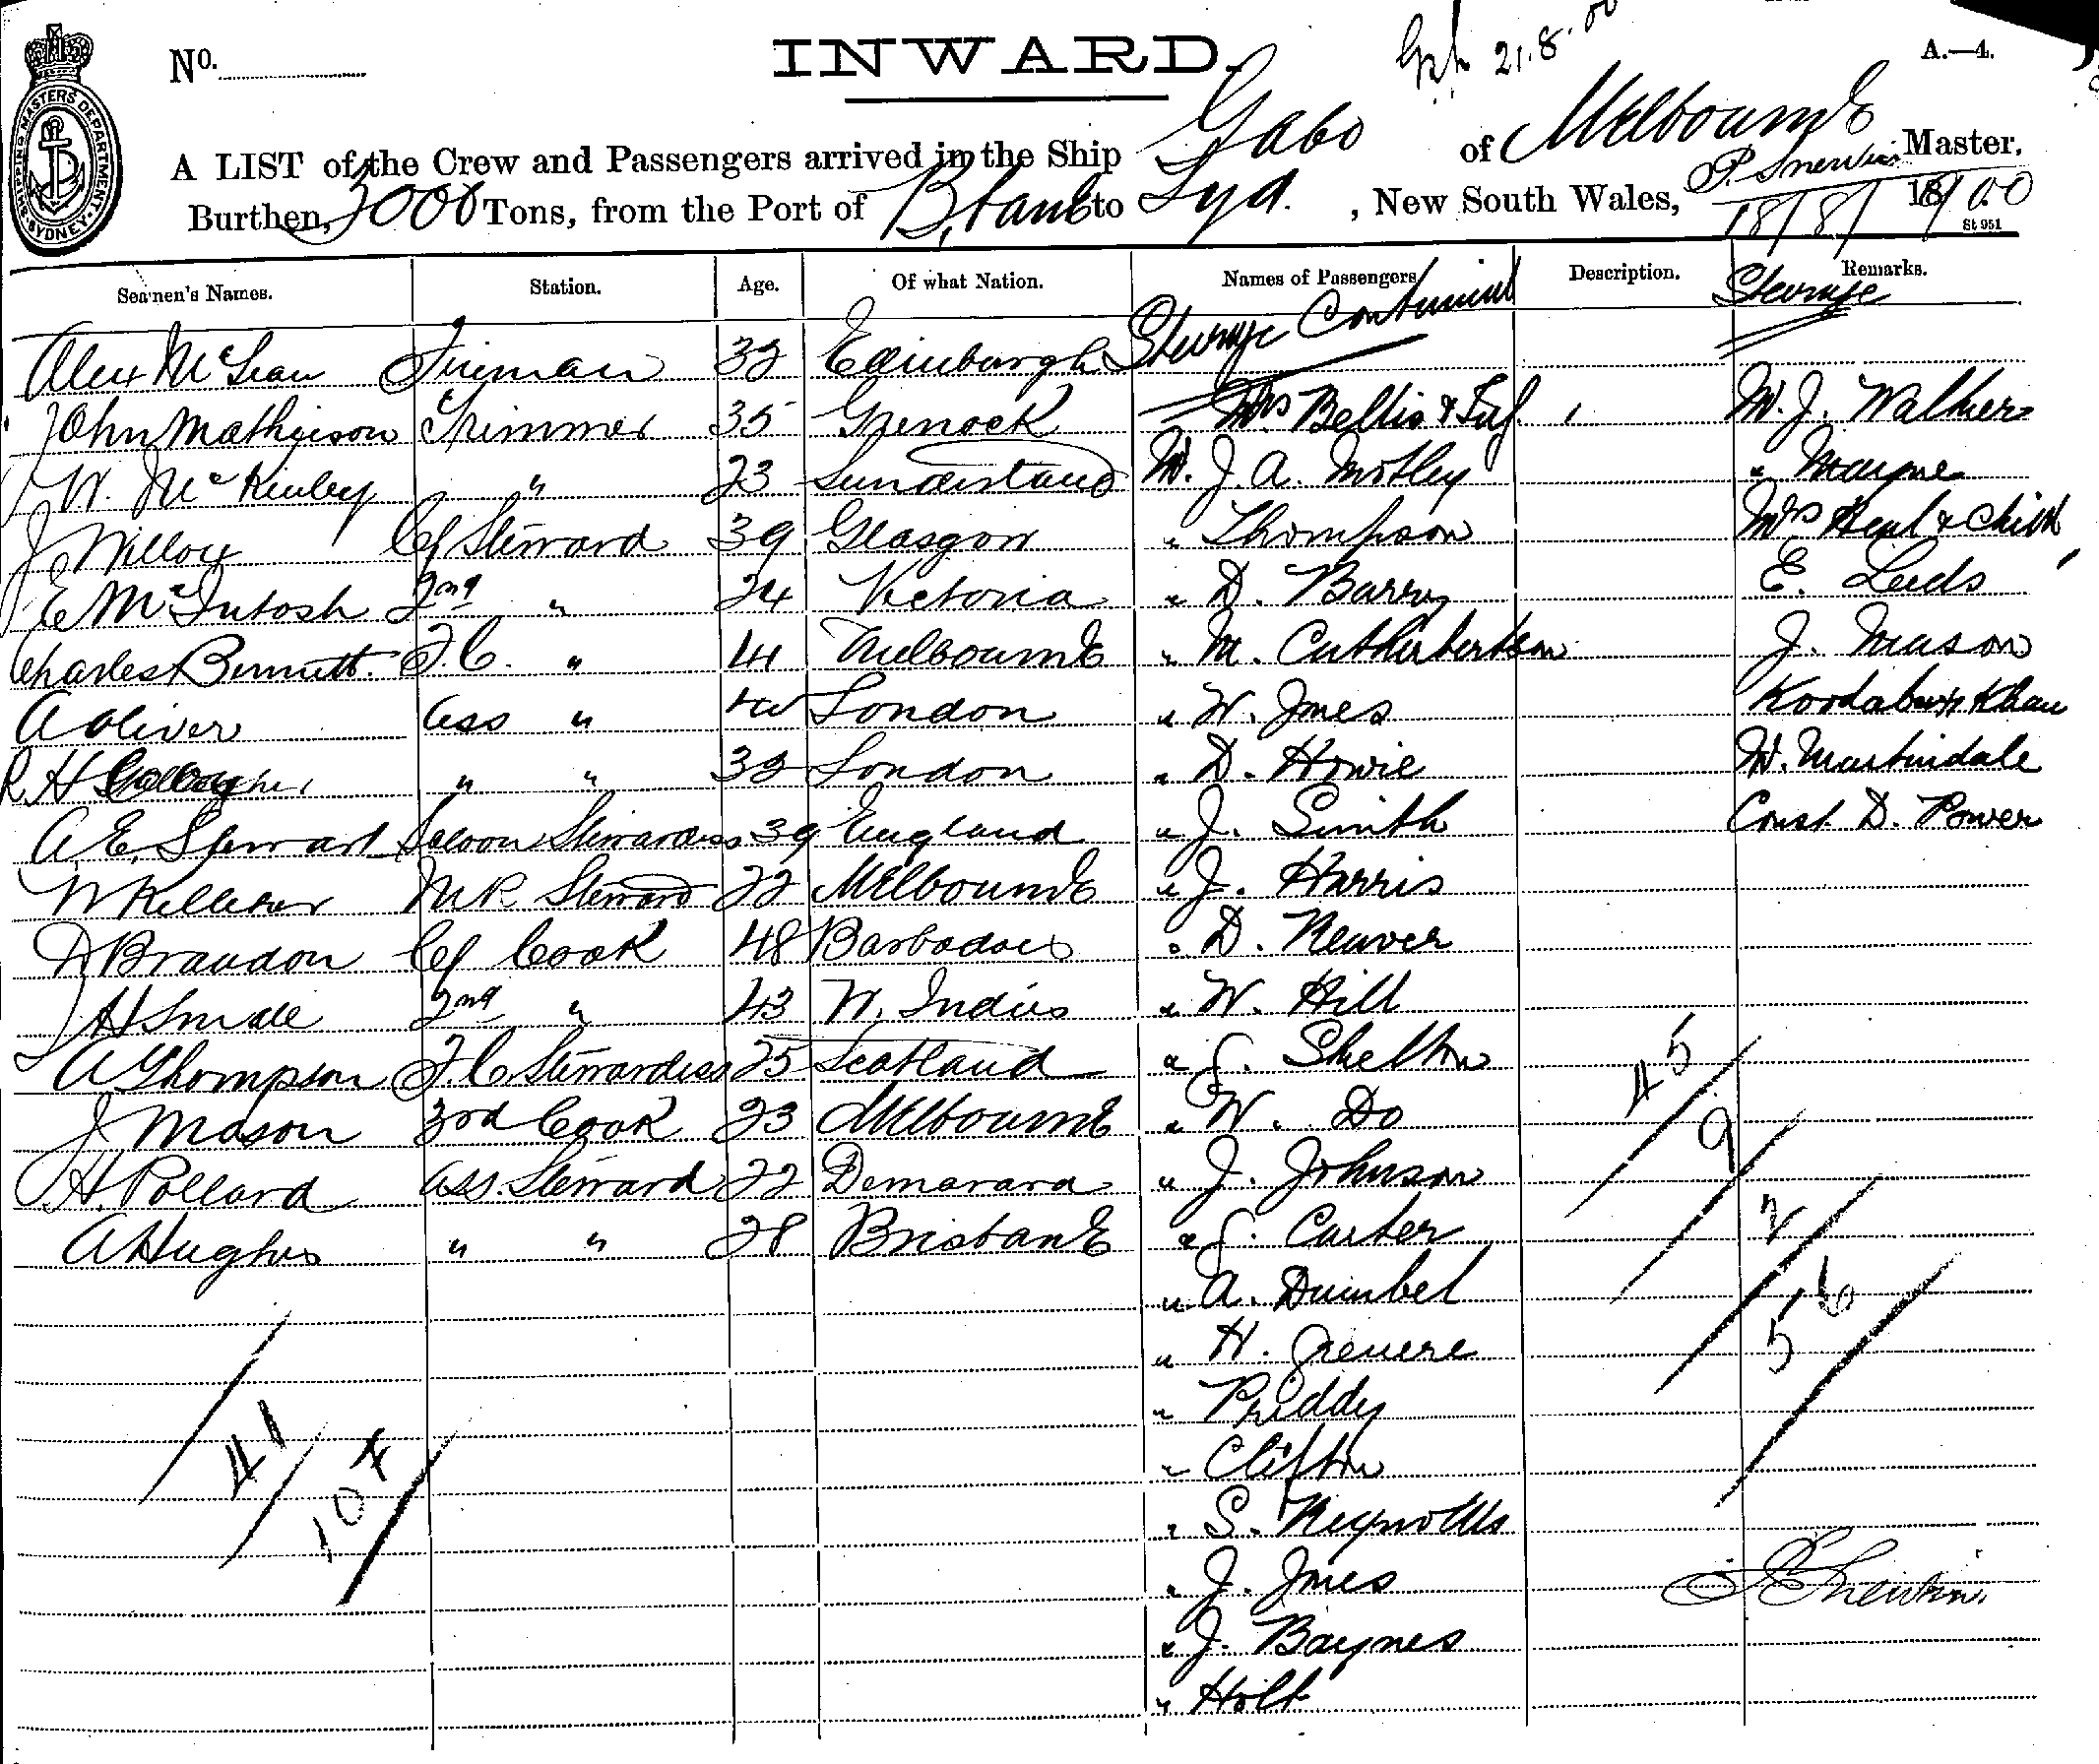 No.
INWARD.
21.8.00
A.—4.
SHIPPING MASTERS DEPARTMENT SYDNEY
A LIST of the Crew and Passengers arrived in the Ship Gabo of Melbourne Master,
Burthen, 3000 Tons, from the Port of B,bane to Syd. , New South Wales, 18/8/ 1900
St 951
Seamen's Names. Station. Age. Of what Nation. Names of Passengers Description. Remarks.
Steerage Continued Steerage
Alex McLean Fireman 32 Edinburgh
John Mathieson Trimmer 35 Grenock Mrs Bellis & Inf. M. J. Walker
W. McKinley " 23 Sunderland M. J. A. Motley " Mayne
J Willox Cf Steward 39 Glasgow " Thompson Mrs & Child
E McIntosh 2nd " 24 Victoria " D. Barry E. Leeds
Charles Bennett. F.C. " 41 Melbourne " M. Cuthbertson J. Mason
A Oliver Ass " London " W. Jones Khan
R H Gallagher " " 32 London " D. Howie W. Martindale
A. E. Stewart Saloon Stewardess 39 England " J. Smith Const D. Power
W Kelleher M R Steward 22 Melbourne " J. Harris
D Brandon Cf Cook 48 Barbadoes " D. Neaver
H 2nd " 43 W. Indies " W. Hill
A Thompson F.C. Stewardess 25 Scotland " J. Shelton
J Mason 3rd Cook 23 Melbourne " W. Do
H. Pollard Ass. Steward 22 Demarara " J. Johnson
A Hughes " " 28 Brisbane " J. Carter
" A. Dumbel
" H.
" Priddy
" Clifton
" S. Reynolds
" J. Jones
" J. Baynes
" Holt
45/
9/
2/
56/
/41/
104/